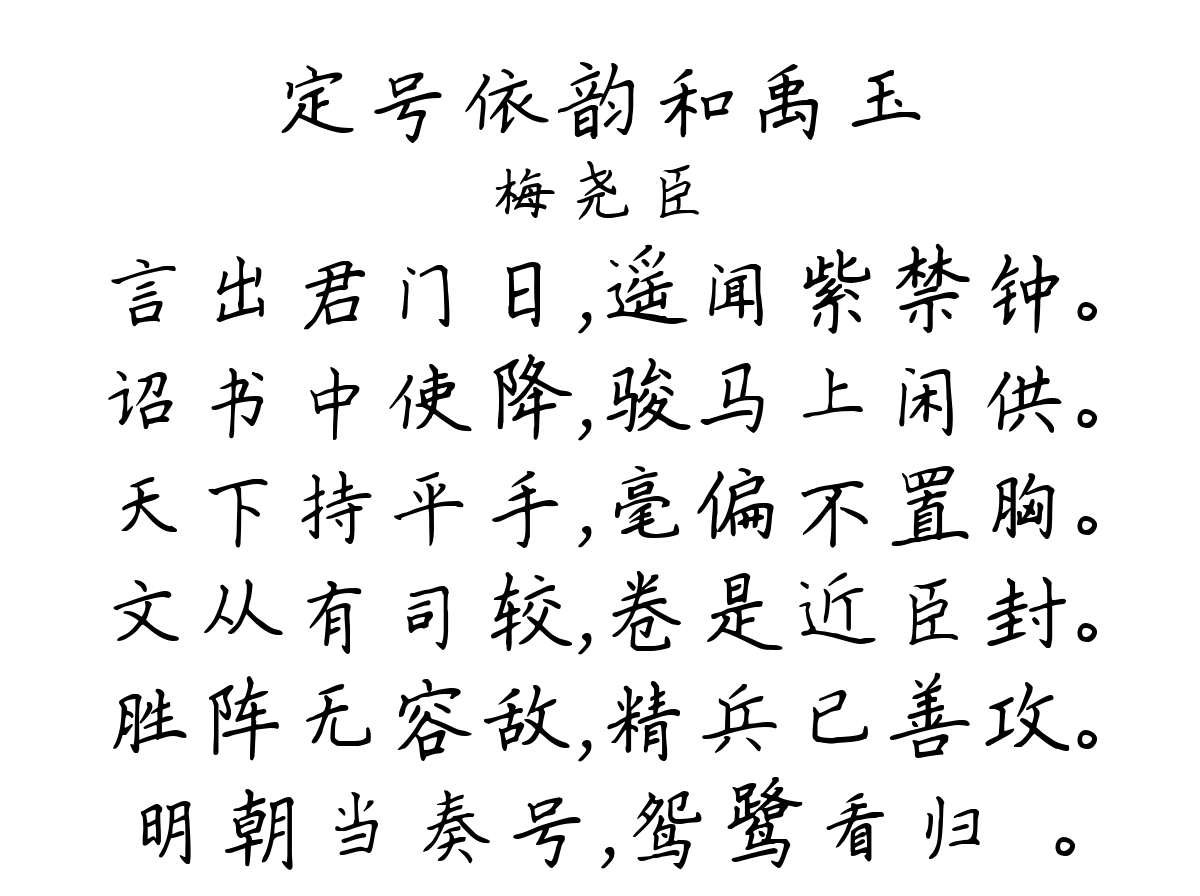 定号依韵和禹玉
梅尧臣
言出君门日,遥闻紫禁钟。
诏书中使降,骏马上闲供。
天下持平手,毫偏不置胸。
文从有司较,卷是近臣封。
胜阵无容敌,精兵已善攻。
明朝当奏号,鸳鹭看归 。